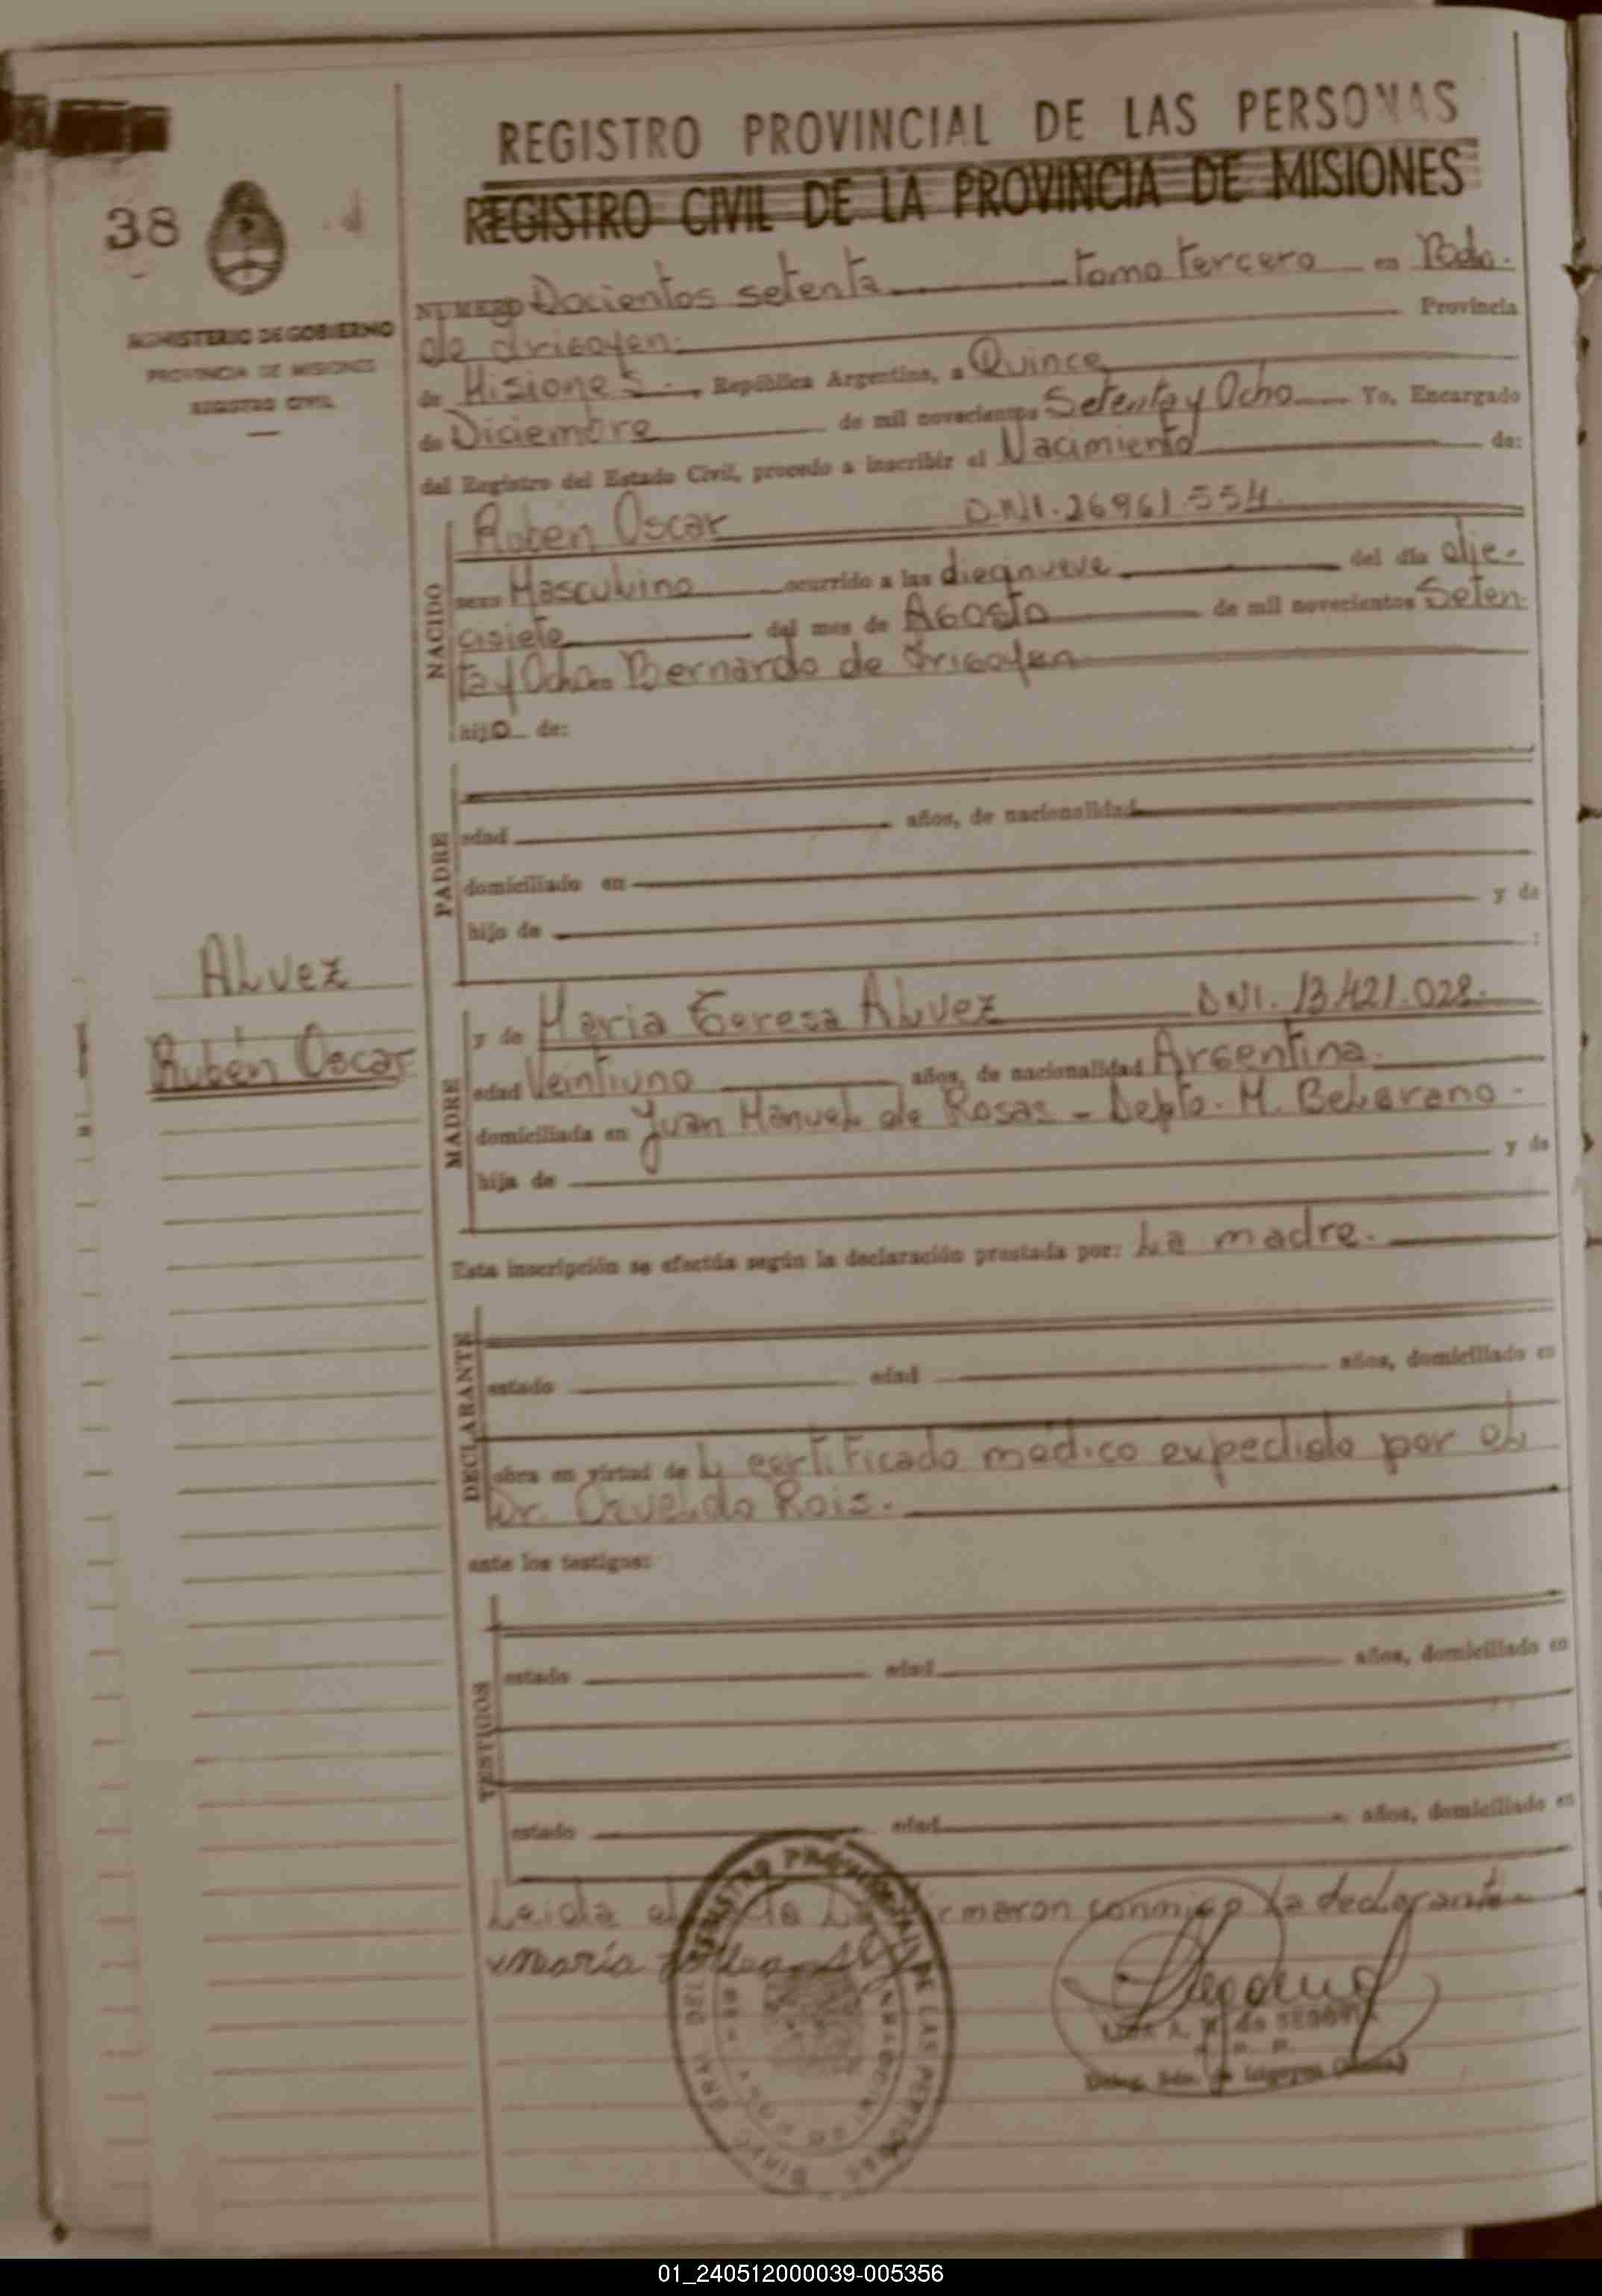 REGISTRO PROVINCIAL DE LAS PERSONAS
REGISTRO CIVIL DE LA PROVINCIA DE MISIONES
38
MINISTERIO DE GOBIERNO
PROVINCIA DE MISIONES
REGISTRO CIVIL
NUMERO Docientos setenta tomo tercero en Bdo.
de Irigoyen. Provincia
de Misiones. República Argentina, a Quince
de Diciembre de mil novecientos Setenta y Ocho Yo, Encargado
del Registro del Estado Civil, procedo a inscribir el Nacimiento de:
NACIDO
Ruben Oscar D.N.I. 26961.554
sexo Masculino ocurrido a las diecinueve del día die-
cisiete del mes de Agosto de mil novecientos Seten-
ta y Ocho en Bernardo de Irigoyen
hijo de:
PADRE
edad años, de nacionalidad
domiciliado en
hijo de y de
Alvez
Rubén Oscar
MADRE
y de Maria Teresa Alvez DNI. 13.421.028.
edad Veintiuno años, de nacionalidad Argentina.
domiciliada en Juan Manuel de Rosas - Depto. M. Belgrano.
hija de y de
Esta inscripción se efectúa según la declaración prestada por: La madre.
DECLARANTE
estado edad años, domiciliado en
obra en virtud del certificado médico expedido por el
Dr. Osvaldo Rois.
ante los testigos:
TESTIGOS
estado edad años, domiciliado en
estado edad años, domiciliado en
Leida el conmigo la declarante
María
A. de SEGOVIA
01_240512000039-005356